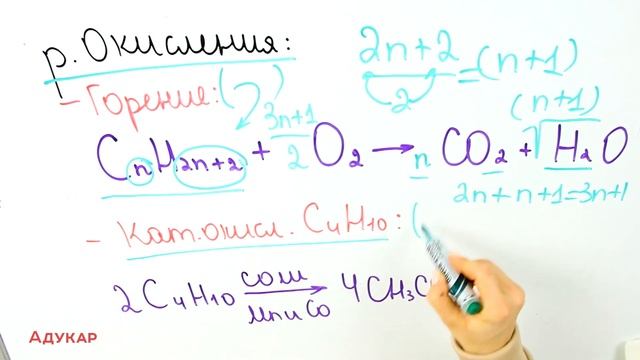 р. Окисления:
2n+2 / 2 = (n+1)
- Горение: (
CnH2n+2 + 3n+1/2 O2 → n CO2 + (n+1) H2O
2n + n+1 = 3n+1
- Кат. окисл. C4H10: (
2C4H10 соли Mn и Co → 4CH3C
Адукар